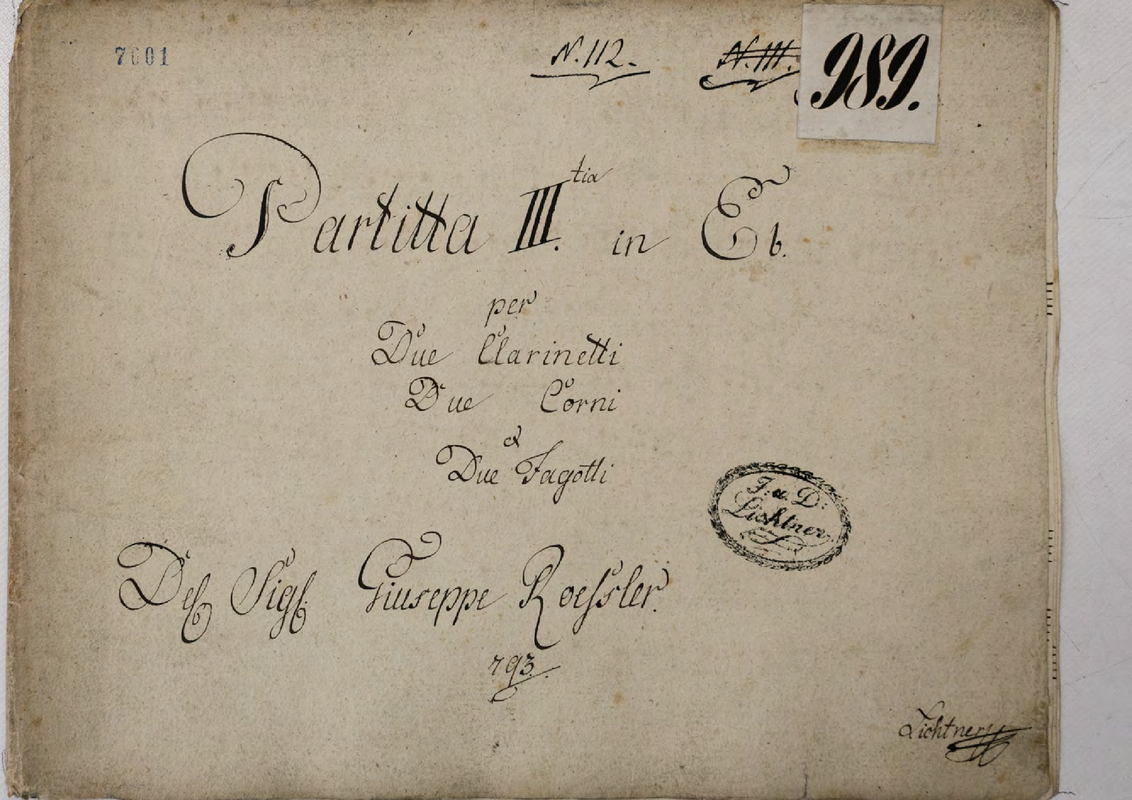 7601
N. 112.
N. III.
989.
Partitta III.tia in Eb.
per
Due Clarinetti
Due Corni
&
Due Fagotti
J. u. D:
Lichtner
Del Sigl. Giuseppe Roessler.
793.
Lichtner